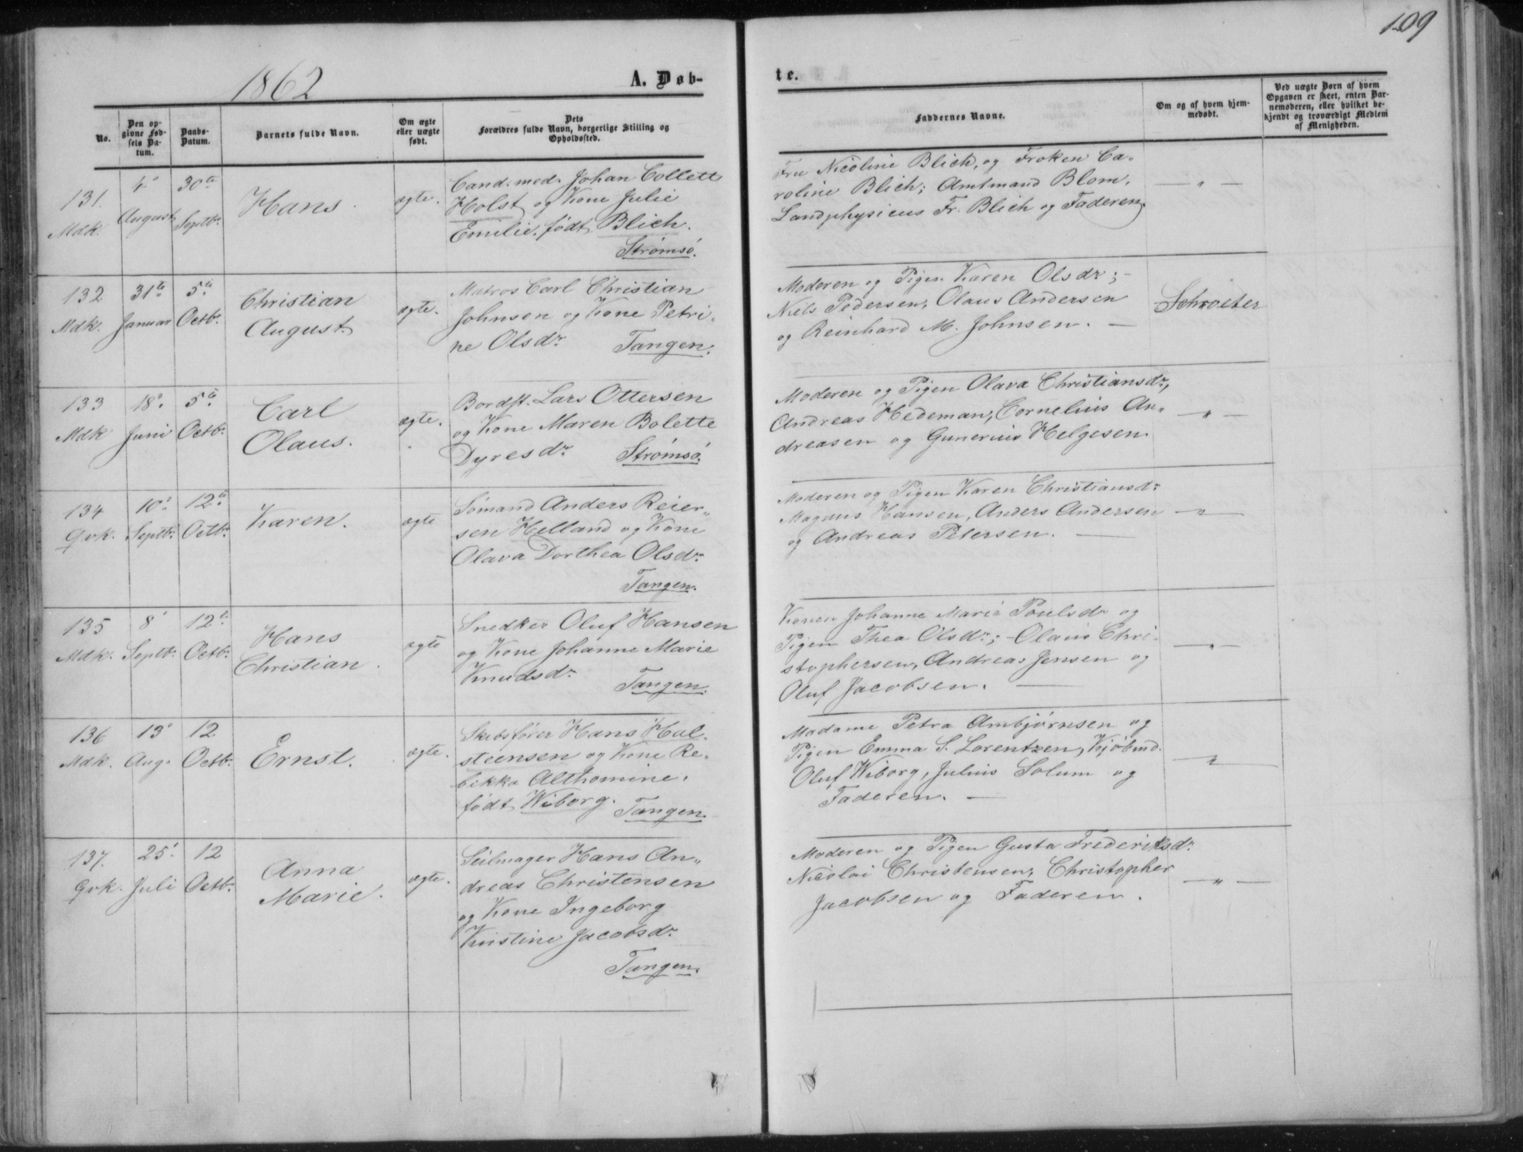 109
1862
A. Døb-
te.
No.
Den op-
givne Fød-
sels Da-
tum.
Daabs-
Datum.
Barnets fulde Navn.
Om ægte
eller uægte
født.
Dets
Forældres fulde Navn, borgerlige Stilling og
Opholdssted.
Faddernes Navne.
Om og af hvem hjem-
medøbt.
Ved uægte Børn af hvem
Opgaven er skeet, enten Bar-
nemoderen, eller hvilket be-
kjendt og troværdigt Medlem
af Menigheden.
131.
Mdk.
4de
August
30te
Septbr.
Hans
ægte.
Cand. med. Johan Collett
Holst og Kone Julie
Emilie, født Blich.
Strømsø.
Fru Nicoline Blich, og Frøken Ca-
roline Blich; Amtmand Blom,
Landphysicus Fr. Blich og Faderen.
— " —
132
Mdk.
31te
Januar
5te
Octb.
Christian
August
ægte.
Matros Carl Christian
Johnsen og Kone Petri-
ne Olsdr.
Tangen.
Moderen og Pigen Karen Olsdr; -
Niels Pedersen, Olaus Andersen
og Reinhard M. Johnsen. —
Schroeter
133
Mdk
18de
Juni
5te
Octb.
Carl
Olaus.
ægte.
Bordst. Lars Ottersen
og Kone Maren Bolette
Dyresdr.
Strømsø.
Moderen og Pigen Olava Christiansdr,
Andreas Hedeman, Cornelius An-
dreasen og Gunerius Helgesen.
— " —
134
Qvk.
10de
Septbr.
12te
Octb.
Karen.
ægte
Sømand Anders Reier-
sen Helland og Kone
Olava Dorthea Olsdr.
Tangen.
Moderen og Pigen Karen Christiansdr
Magnus Hansen, Anders Andersen
og Andreas Petersen. —
— " —
135
Mdk.
8de
Septbr.
12te
Octb.
Hans
Christian.
ægte
Snedker Oluf Hansen
og Kone Johanne Marie
Knudsdr.
Tangen.
Konen Johanne Marie Poulsdr og
Pigen Thea Olsdr; Olaus Chri-
stophersen, Andreas Jensen og
Oluf Jacobsen. —
— " —
136
Mdk.
13de
Aug.
12
Octb.
Ernst.
ægte.
Skibsfører Hans Hal-
steensen og Kone Re-
bikka Althomine,
født Wiborg.
Tangen.
Madame Petra Ambjørnsen og
Pigen Emma S. Lorentzen, Kjøbmd.
Oluf Wiborg, Julius Solum og
Faderen. —
— " —
137.
Qvk.
25de
Juli
12
Octb.
Anna
Marie.
ægte.
Seilmager Hans An-
dreas Christensen
og Kone Ingeborg
Kristine Jacobsdr.
Tangen.
Moderen og Pigen Gusta Frederiksdr
Nicolai Christensen, Christopher
Jacobsen og Faderen.
— " —